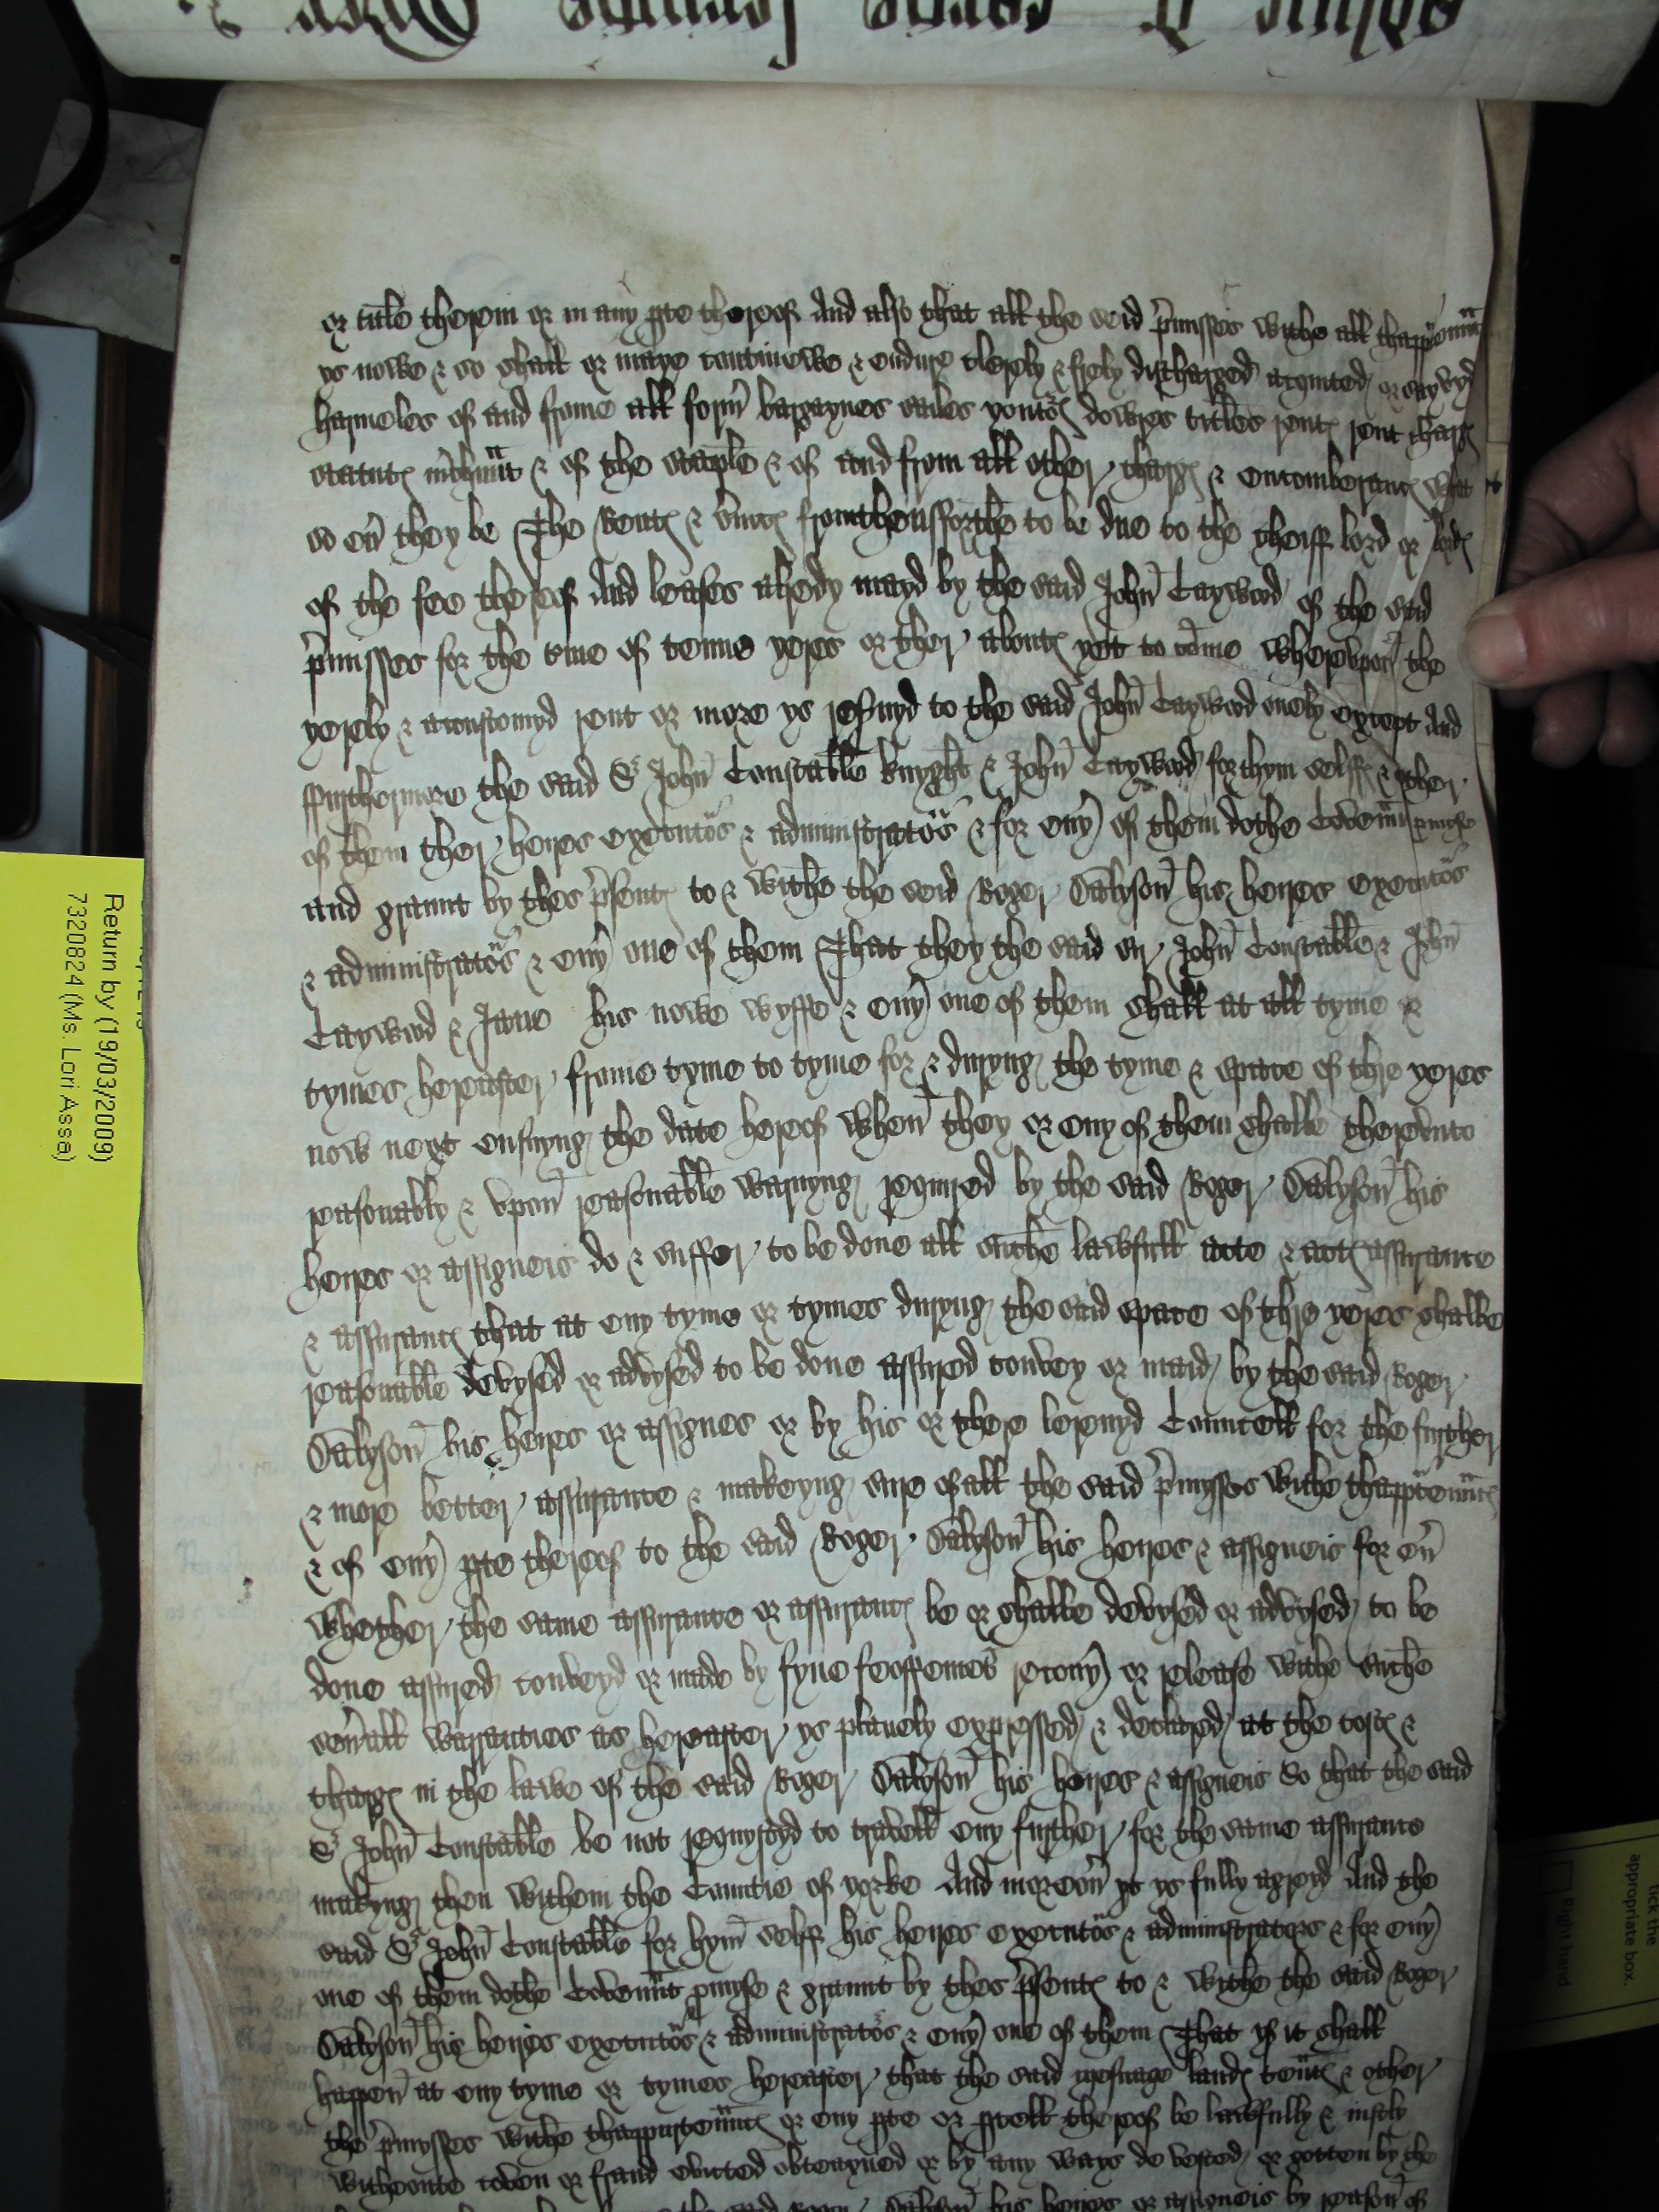 or title therein or in any pte thereof And also that all the seid pmisses withe all thapptennc
ys nowe & so shall or maye contineweo & endure clerely & frely discharged acquited or savyd
harmeles of and frome all form bargaynes sailes yontors dowres titles rents rent charges
statuts mchunt & of the staple & of and from all other charges & encomberants what
so ev they be The Rents & svices fromthensforthe to be due to the cheiff lord or lords
of the fee thereof And leases alredy mayd by the said John Caywod of the said
pmisses for the time of tenne yeres or ther abouts yet to come Whereupon the
yerely & accustomyd rent or more ys resvuyd to the said John Caywod onely except And
ffurthermore the said Sr John Constable knyght & John Caywod for thym selff & ether
of them ther heires executors & administrators & for evy of them dothe Covennt pmyse
and graunt by thes psents to & withe the seid Roger Dalyson his heires executors
& administrators & evy one of them That they the said sir John Constable & John
Caywod & Jane his nowe wyffe & evy one of them shall at all tyme or
tymes hereafter frome tyme to tyme for & duryng the tyme & space of thre yeres
now next ensuyng the date hereof When they or eny of them shalbe therevnto
reasonably & vpon reasonable warnyng required by the said Roger Dalyson his
heires or assigneis do & suffer to be done all suche lawfull acte & acts assurance
& assurancs that at eny tyme or tymes duryng the said space of thre yeres shalbe
reasonable devysed or advysed to be done assured convey or maid by the said Roger
Dalyson his heires or assignes or by his or there lerenyd Councell for the further
& more better assurance & makeyng sure of all the said pmysses withe thapptennces
& of evy pte thereof to the said Roger Dalyson his heires & assigneis for ev
Whether the same assurance or assurancs be or shalbe devysed or advysed to be
done assured conveyd or made by fyne feoffements recovy or release withe suche
sevall warranties as hereafter ys planely expressed & declared at the costs &
charges in the lawe of the said Roger Dalyson his heires & assigneis So that the said
Sr John Constable be not requyryd to travell eny further for the same assurance
makyng then within the Countie of yorke And moreov yt ys fully agreyd And the
said Sr John Constable for hym selff his heires executors & administrators & for evy
one of them dothe Covennt pmyse & graunt by thes psents to & withe the said Roger
Dalyson his heires executors & administrators & evy one of them That yf it shall
happen at eny tyme or tymes hereafter that the said mesuage lands tents & other
the pmysses withe thappurtennces or eny pte or pcell thereof be lawfully & iustly
witheoute coven or fraud evicted obteayned or by any ways de vested or gotten by the
the said Roger Dalyson his heires or assigneis by reason of
Return by (19/03/2009)
7320824 (Ms. Lori Assa)
tick the
appropriate box.
Right hand